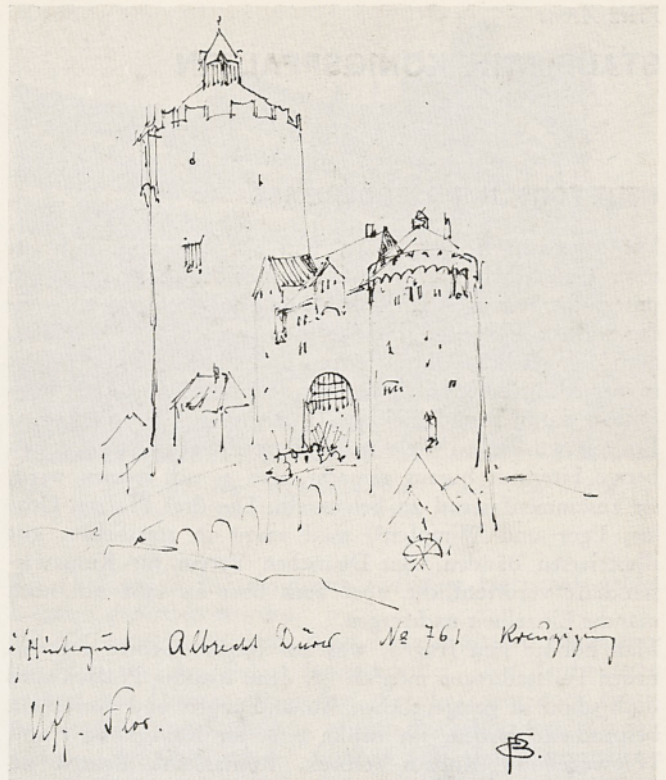 i/Hintergrund Albrecht Dürer № 761 Kreuzigung
Uff. Flor.